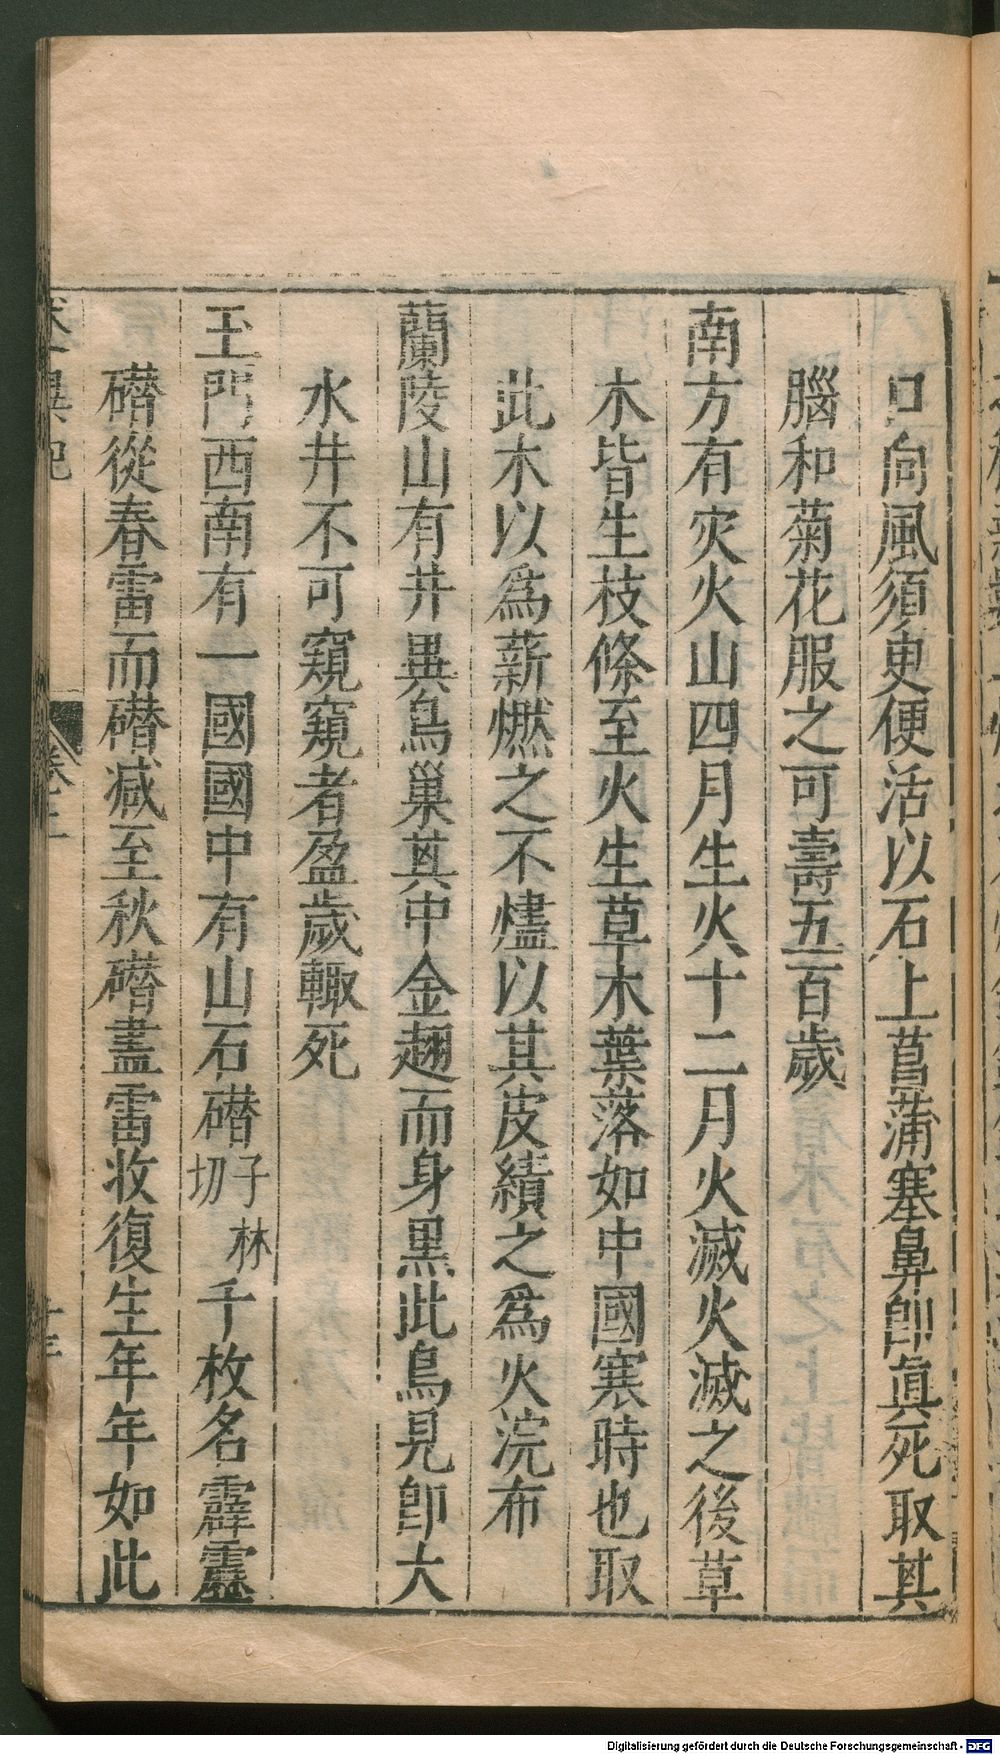 口向風須更便活以石上菖蒲塞鼻卽眞死取其
腦和菊花服之可壽五百歲
南方有灾火山四月生火十二月火滅火滅之後草
木皆生枝條至火生草木葉落如中國寒時也取
此木以爲薪燃之不燼以其皮績之爲火浣布
蘭陵山有井異鳥巢其中金翅而身黑此鳥見卽大
水井不可窺窺者盈歲輙死
玉門西南有一國國中有山石磳子林切千枚名霹靂
磳從春雷而磳减至秋磳盡雷收復生年年如此
異記
卷二
Digitalisierung gefördert durch die Deutsche Forschungsgemeinschaft - DFG